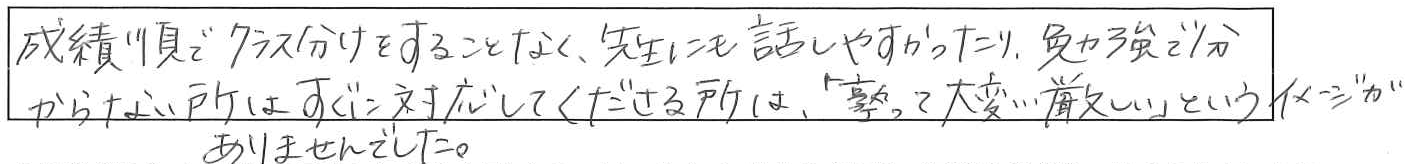 成績順でクラス分けをすることなく、先生にも話しやすかったり、勉強で分
からない所はすぐに対応してくださる所は、「塾って大変…厳しい」というイメージが
ありませんでした。